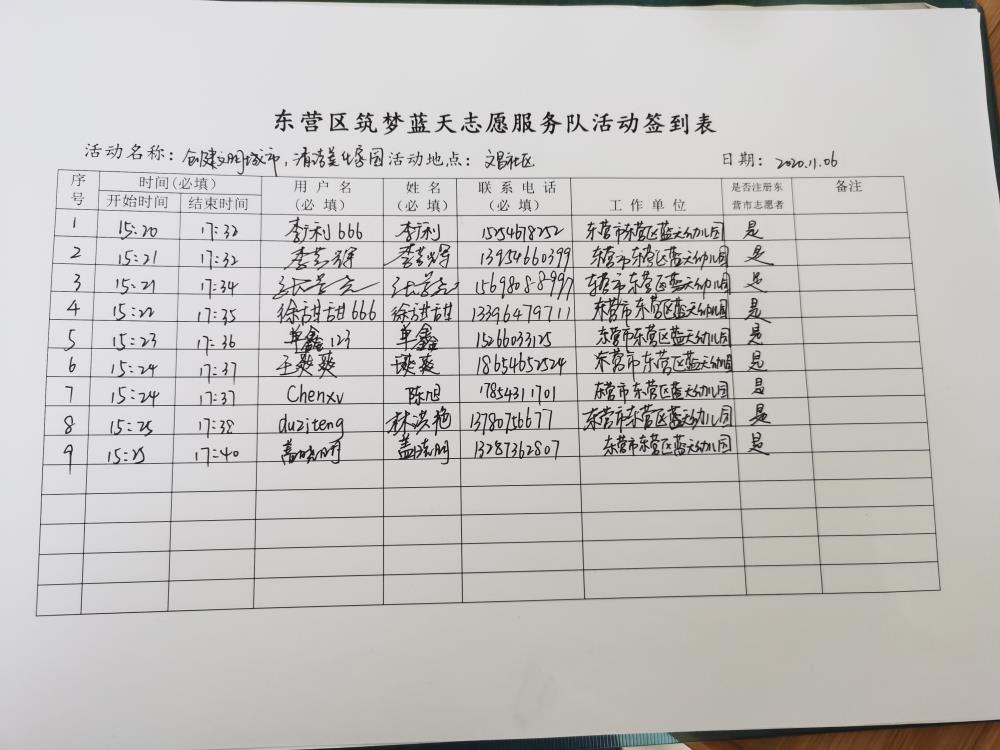 东营区筑梦蓝天志愿服务队活动签到表
活动名称：创建文明城市，清洁美化家园 活动地点：文昌社区 日期：2020.11.06
序号 时间(必填) 用户名(必填) 姓名(必填) 联系电话(必填) 工作单位 是否注册东营市志愿者 备注
开始时间 结束时间
1 15:20 17:32 李利666 李利 15254678252 东营市东营区蓝天幼儿园 是
2 15:21 17:32 13954660399 东营市东营区蓝天幼儿园 是
3 15:21 17:34 15698088997 东营市东营区蓝天幼儿园 是
4 15:22 17:35 徐甜甜666 徐甜甜 13396479711 东营市东营区蓝天幼儿园 是
5 15:23 17:36 单鑫123 单鑫 15266033125 东营市东营区蓝天幼儿园 是
6 15:24 17:37 王爽爽 王爽爽 18654652524 东营市东营区蓝天幼儿园 是
7 15:24 17:37 Chenxv 陈旭 17854311701 东营市东营区蓝天幼儿园 是
8 15:25 17:38 duziteng 林洪艳 13780756677 东营市东营区蓝天幼儿园 是
9 15:25 17:40 盖晓明 盖晓明 13287362807 东营市东营区蓝天幼儿园 是